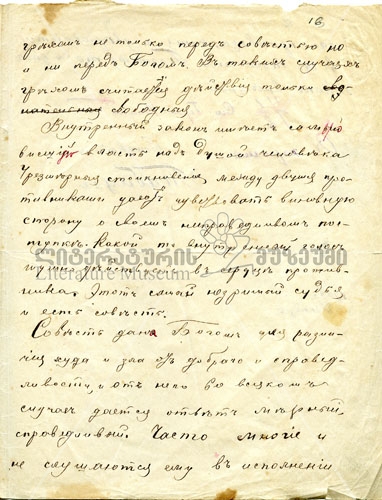 16
грѣхомъ не только передъ совѣстью но
и ни передъ Богомъ. Въ такихъ случаяхъ
грѣхомъ считается дѣйствіе только
свободныя
Внутренный законъ имѣетъ самую
высшую власть надъ душой человѣка
Чрезмѣрная столкновенія между двумя про-
тивниками даетъ чувствовать виновную
сторону о своемъ неправедливомъ пос-
тупкѣ. Какой то внутренній голосъ
въ сердцѣ против-
ника. Этотъ самый незримой судья
и есть совѣсть.
Совѣсть дана Богомъ для разли-
чія худа и зла отъ добраго и справед-
ливости, и отъ него во всякомъ
случаѣ дается отвѣтъ
справедливый. Часто многіе и
не слушаются ему въ исполненіи
ლიტერატურის მუზეუმი
Literature Museum